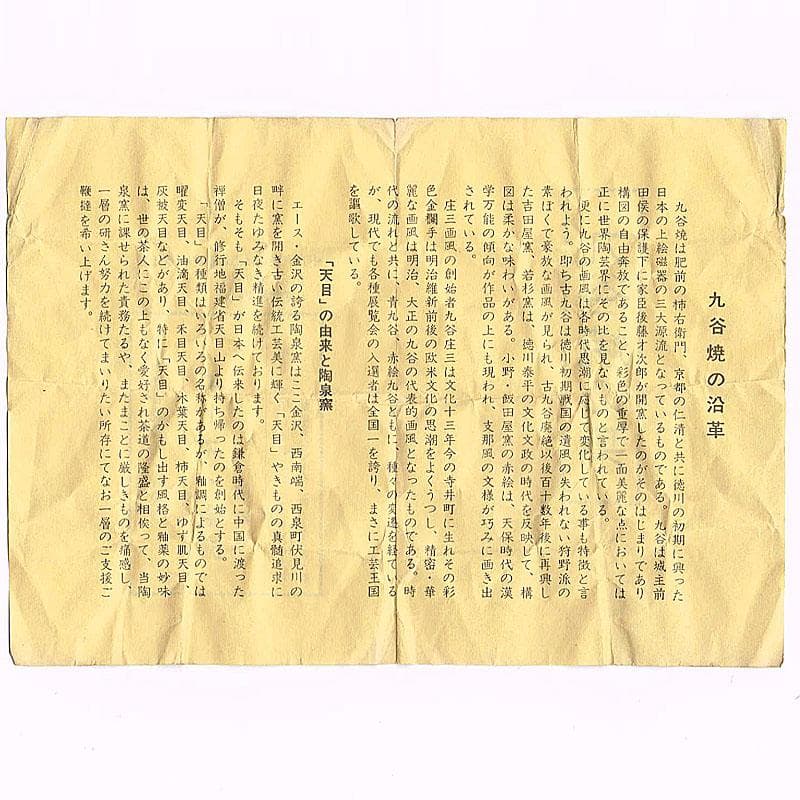 九谷焼の沿革
九谷焼は肥前の柿右衛門、京都の仁清と共に徳川の初期に興った
日本の上絵磁器の三大源流となっているものである。九谷は城主前
田侯の保護下に家臣後藤才次郎が開窯したのがそのはじまりであり
構図の自由奔放であること、彩色の重厚で一面美麗な点においては
正に世界陶芸界にその比を見ないものと言われている。
更に九谷の画風は各時代思潮に応じて変化している事も特徴と言
われよう。即ち古九谷は徳川初期戦国の遺風の失われない狩野派の
素ぼくで豪放な画風が見られ、古九谷廃絶以後百十数年後に再興し
た吉田屋窯、若杉窯は、徳川泰平の文化文政の時代を反映して、構
図は柔かな味わいがある。小野・飯田屋窯の赤絵は、天保時代の漢
学万能の傾向が作品の上にも現われ、支那風の文様が巧みに画き出
されている。
庄三画風の創始者九谷庄三は文化十三年今の寺井町に生れその彩
色金欄手は明治維新前後の欧米文化の思潮をよくうつし、精密・華
麗な画風は明治、大正の九谷の代表的画風となったものである。時
代の流れと共に、青九谷、赤絵九谷ともに、種々の変遷を経ている
が、現代でも各種展覧会の入選者は全国一を誇り、まさに工芸王国
を謳歌している。
「天目」の由来と陶泉窯
エース・金沢の誇る陶泉窯はここ金沢、西南端、西泉町伏見川の
畔に窯を開き古い伝統工芸美に輝く「天目」やきものの真髄追求に
日夜たゆみなき精進を続けております。
そもそも「天目」が日本へ伝来したのは鎌倉時代に中国に渡った
禅僧が、修行地福建省天目山より持ち帰ったのを創始とする。
「天目」の種類はいろいろの名称があるが、釉調によるものでは
曜変天目、油滴天目、禾目天目、木葉天目、柿天目、ゆず肌天目、
灰被天目などがあり、特に「天目」のかもし出す風格と釉薬の妙味
は、世の茶人にこの上もなく愛好され茶道の隆盛と相俟って、当陶
泉窯に課せられた責務たるや、またまことに厳しきものを痛感し、
一層の研さん努力を続けてまいりたい所存にてなお一層のご支援ご
鞭撻を希い上げます。